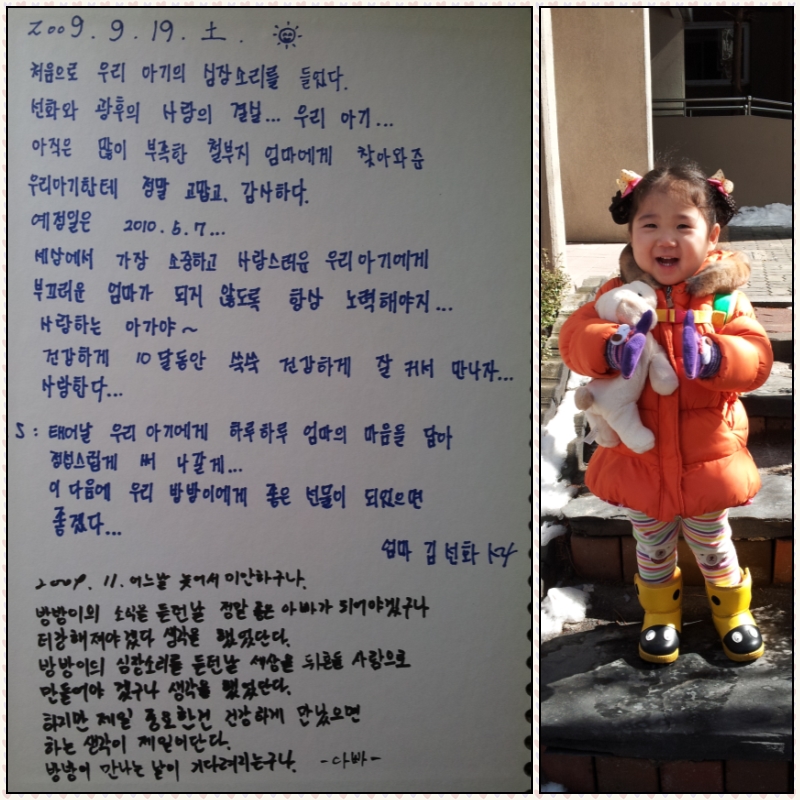 2009. 9. 19. 土.
처음으로 우리 아기의 심장소리를 들었다.
선화와 광후의 사랑의 결실... 우리 아기...
아직은 많이 부족한 철부지 엄마에게 찾아와준
우리아기한테 정말 고맙고, 감사하다.
예정일은 2010. 5. 7...
세상에서 가장 소중하고 사랑스러운 우리 아기에게
부끄러운 엄마가 되지 않도록 항상 노력해야지...
사랑하는 아가야~
건강하게 10달동안 쑥쑥 건강하게 잘 커서 만나자...
사랑한다...
S : 태어날 우리 아기에게 하루하루 엄마의 마음을 담아
정성스럽게 써 나갈게...
이 다음에 우리 방방이에게 좋은 선물이 되었으면
좋겠다...
엄마 김선화
2009. 11. 어느날 늦어서 미안하구나.
방방이의 소식을 듣던날 정말 좋은 아빠가 되어야겠구나
더강해져야겠다 생각을 했었단다.
방방이의 심장소리를 듣던날 세상을 사랑으로
만들어야 겠구나 생각을 했었단다.
하지만 제일 중요한건 건강하게 만났으면
하는 생각이 제일이단다.
방방이 만나는 날이 기다려지는구나. -아빠-